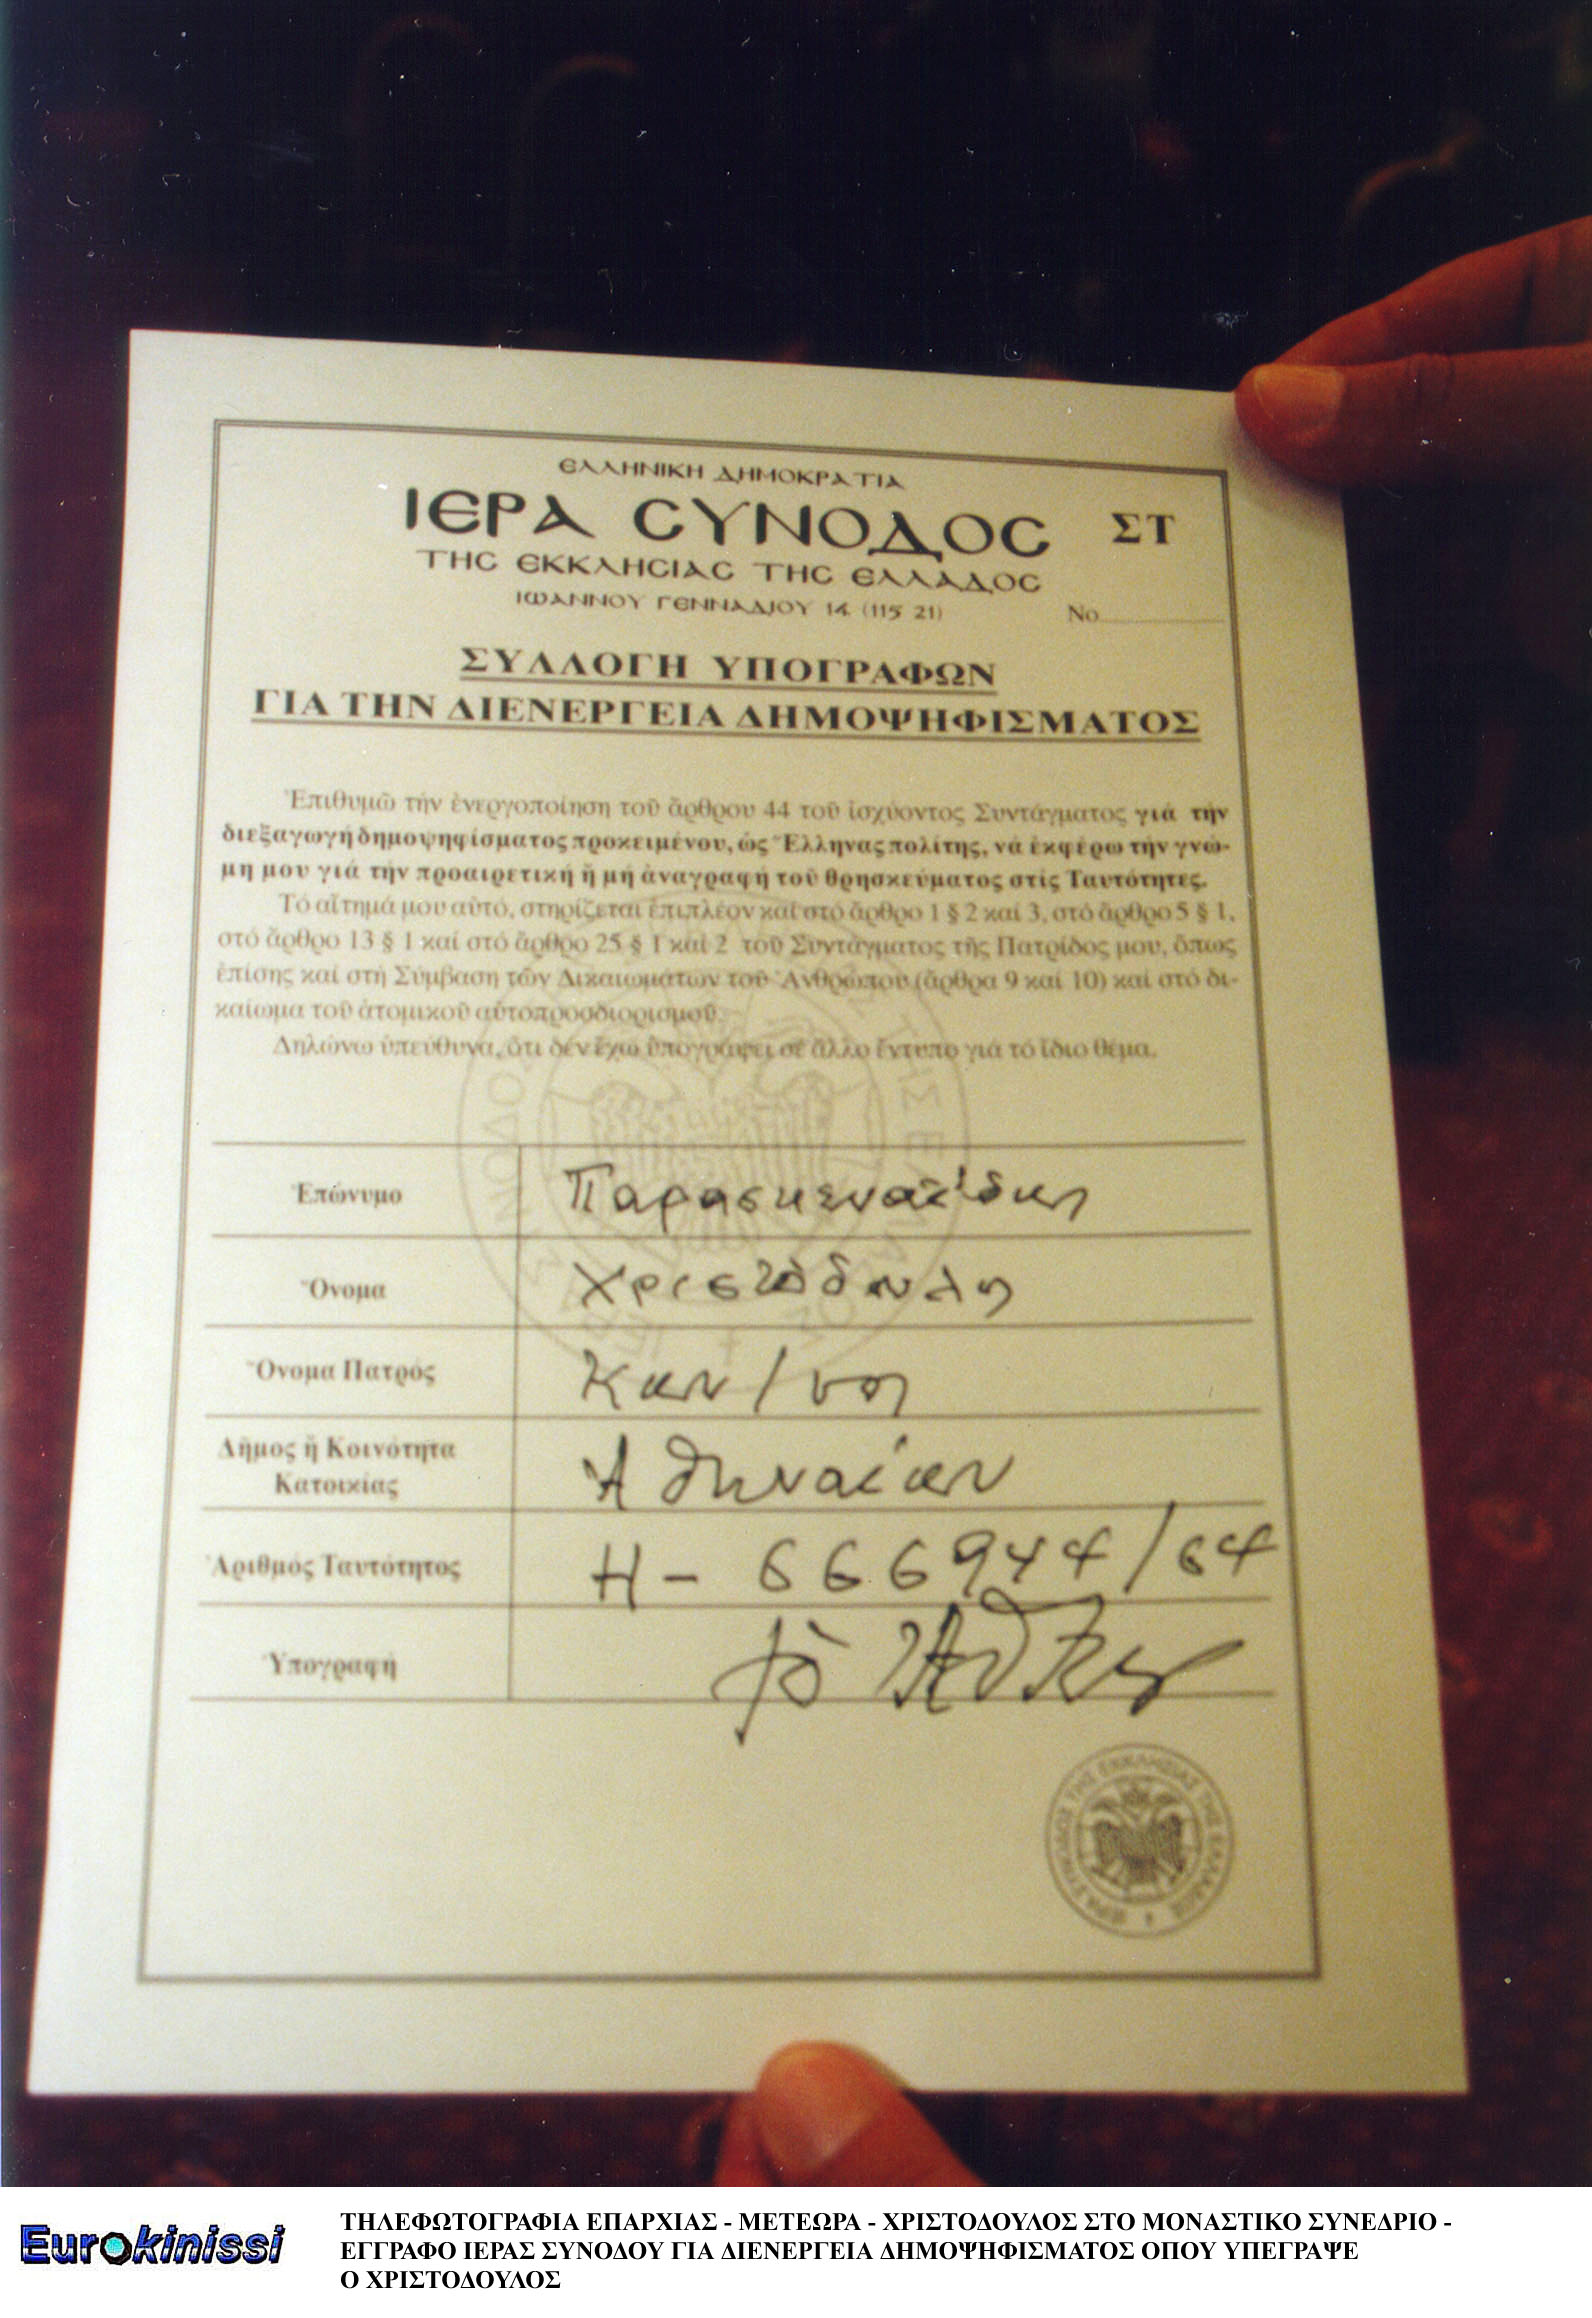 ΕΛΛΗΝΙΚΗ ΔΗΜΟΚΡΑΤΙΑ
ΙΕΡΑ CΥΝΟΔΟC ΣΤ
ΤΗC ΕΚΚΛΗCΙΑC ΤΗC ΕΛΛΑΔΟC
ΙΩΑΝΝΟΥ ΓΕΝΝΑΔΙΟΥ 14 (115 21)
No
ΣΥΛΛΟΓΗ ΥΠΟΓΡΑΦΩΝ
ΓΙΑ ΤΗΝ ΔΙΕΝΕΡΓΕΙΑ ΔΗΜΟΨΗΦΙΣΜΑΤΟΣ
Ἐπιθυμῶ τήν ἐνεργοποίηση τοῦ ἄρθρου 44 τοῦ ἰσχύοντος Συντάγματος γιά τήν
διεξαγωγή δημοψηφίσματος προκειμένου, ὡς Ἕλληνας πολίτης, νά ἐκφέρω τήν γνώ-
μη μου γιά τήν προαιρετική ἤ μή ἀναγραφή τοῦ θρησκεύματος στίς Ταυτότητες.
Τό αἴτημά μου αὐτό, στηρίζεται ἐπιπλέον καί στό ἄρθρο 1 § 2 καί 3, στό ἄρθρο 5 § 1,
στό ἄρθρο 13 § 1 καί στό ἄρθρο 25 § 1 καί 2 τοῦ Συντάγματος τῆς Πατρίδος μου, ὅπως
ἐπίσης καί στή Σύμβαση τῶν Δικαιωμάτων τοῦ Ἀνθρώπου (ἄρθρα 9 καί 10) καί στό δι-
καίωμα τοῦ ἀτομικοῦ αὐτοπροσδιορισμοῦ.
Δηλώνω ὑπεύθυνα, ὅτι δέν ἔχω ὑπογράψει σέ ἄλλο ἔντυπο γιά τό ἴδιο θέμα.
Ἐπώνυμο Παρασκευαΐδης
Ὄνομα Χριστόδουλος
Ὄνομα Πατρός Κων/νος
Δῆμος ἤ Κοινότητα
Κατοικίας
Αθηναίων
Ἀριθμός Ταυτότητος Η - 666944/64
Ὑπογραφή
ΙΕΡΑ ΣΥΝΟΔΟΣ ΤΗΣ ΕΚΚΛΗΣΙΑΣ ΤΗΣ ΕΛΛΑΔΟΣ
Eurokinissi
ΤΗΛΕΦΩΤΟΓΡΑΦΙΑ ΕΠΑΡΧΙΑΣ - ΜΕΤΕΩΡΑ - ΧΡΙΣΤΟΔΟΥΛΟΣ ΣΤΟ ΜΟΝΑΣΤΙΚΟ ΣΥΝΕΔΡΙΟ -
ΕΓΓΡΑΦΟ ΙΕΡΑΣ ΣΥΝΟΔΟΥ ΓΙΑ ΔΙΕΝΕΡΓΕΙΑ ΔΗΜΟΨΗΦΙΣΜΑΤΟΣ ΟΠΟΥ ΥΠΕΓΡΑΨΕ
Ο ΧΡΙΣΤΟΔΟΥΛΟΣ